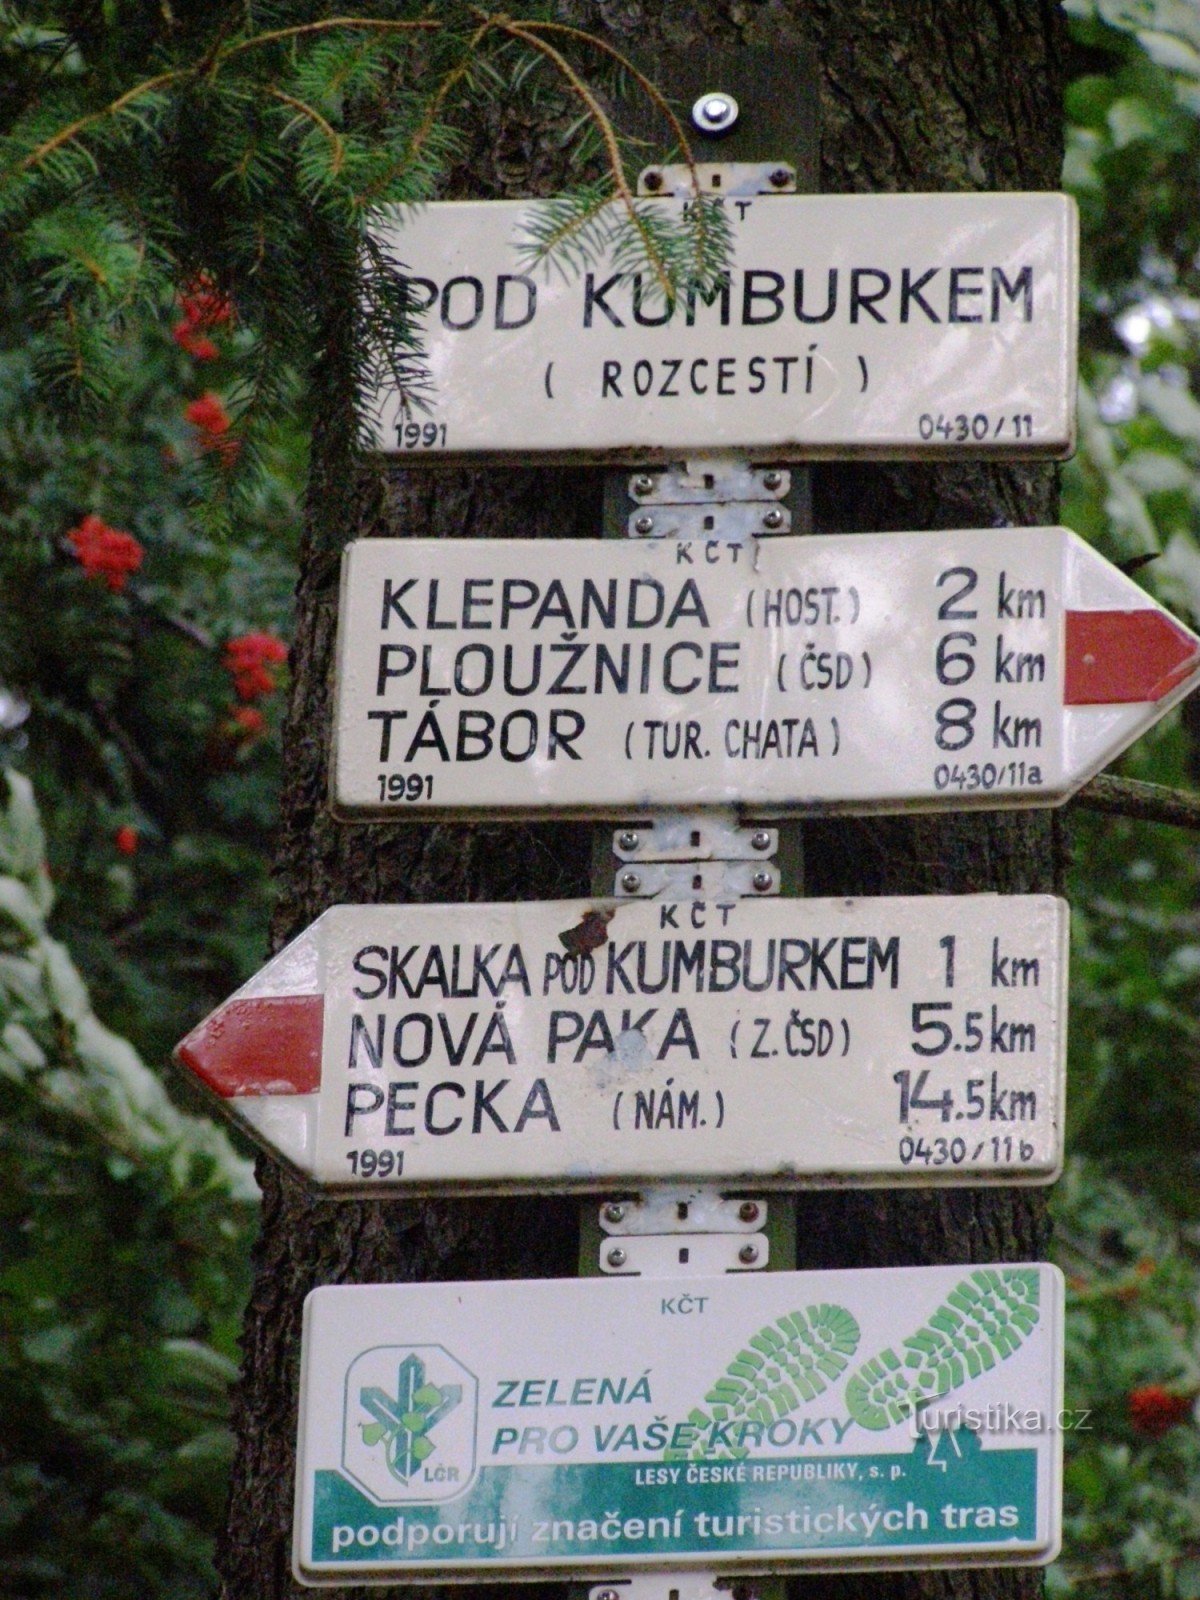 KČT
POD KUMBURKEM
( ROZCESTÍ )
1991 0430/11
KČT
KLEPANDA (HOST.) 2 km
PLOUŽNICE (ČSD) 6 km
TÁBOR (TUR. CHATA) 8 km
1991 0430/11a
KČT
SKALKA POD KUMBURKEM 1 km
NOVÁ PAKA (Z.ČSD) 5.5km
PECKA (NÁM.) 14.5km
1991 0430/11b
KČT
ZELENÁ
PRO VAŠE KROKY
LČR
LESY ČESKÉ REPUBLIKY, s. p.
podporují značení turistických tras
Turistika.cz